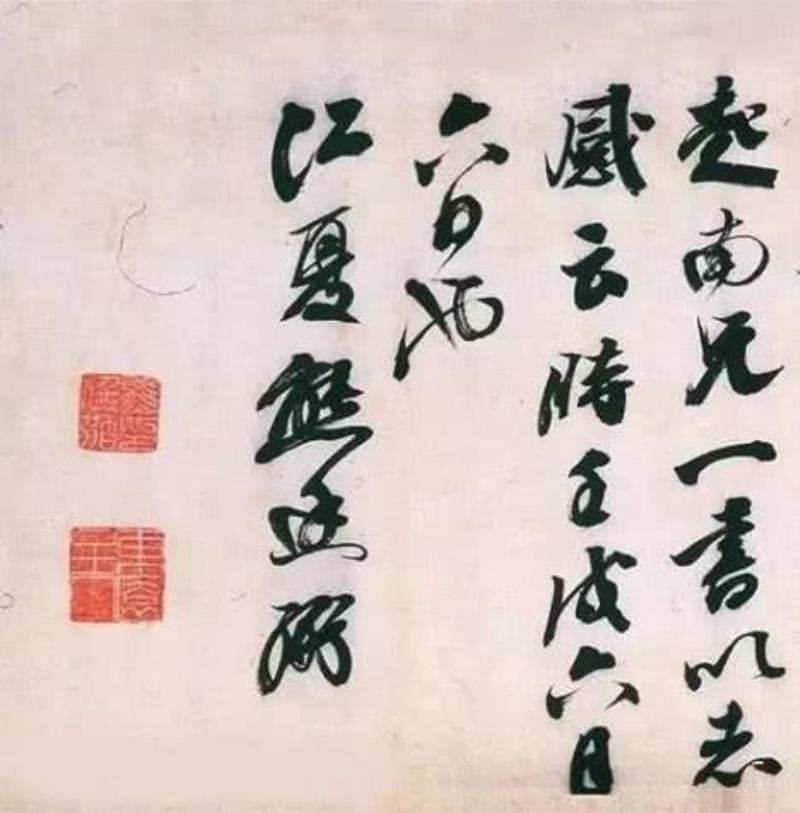 起南兄一書以志
感云時壬戌六月
六日也
江夏熊廷弼